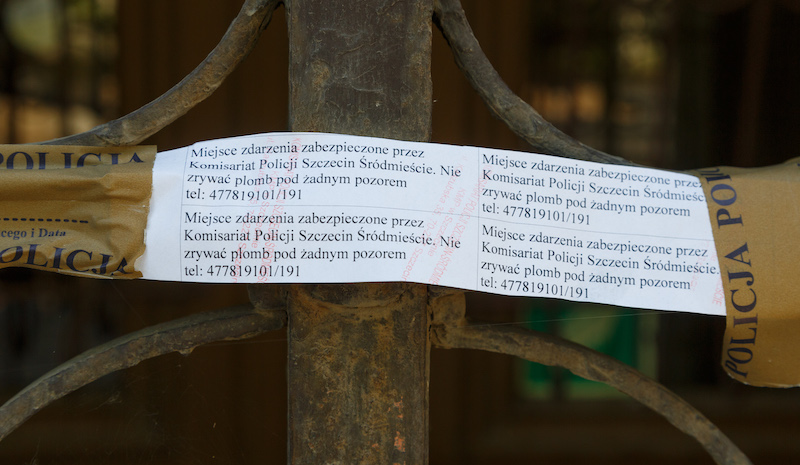 POLICJA
cego i Data
POLICJA
Miejsce zdarzenia zabezpieczone przez
Komisariat Policji Szczecin Śródmieście. Nie
zrywać plomb pod żadnym pozorem
tel: 477819101/191
Miejsce zdarzenia zabezpieczone przez
Komisariat Policji Szczecin Śródmieście. Nie
zrywać plomb pod żadnym pozorem
tel: 477819101/191
Miejsce zdarzenia zabezpieczone przez
Komisariat Policji Szczecin Śródmieście.
zrywać plomb pod żadnym pozorem
tel: 477819101/191
Miejsce zdarzenia zabezpieczone przez
Komisariat Policji Szczecin Śródmieście.
zrywać plomb pod żadnym pozorem
tel: 477819101/191
POLICJA